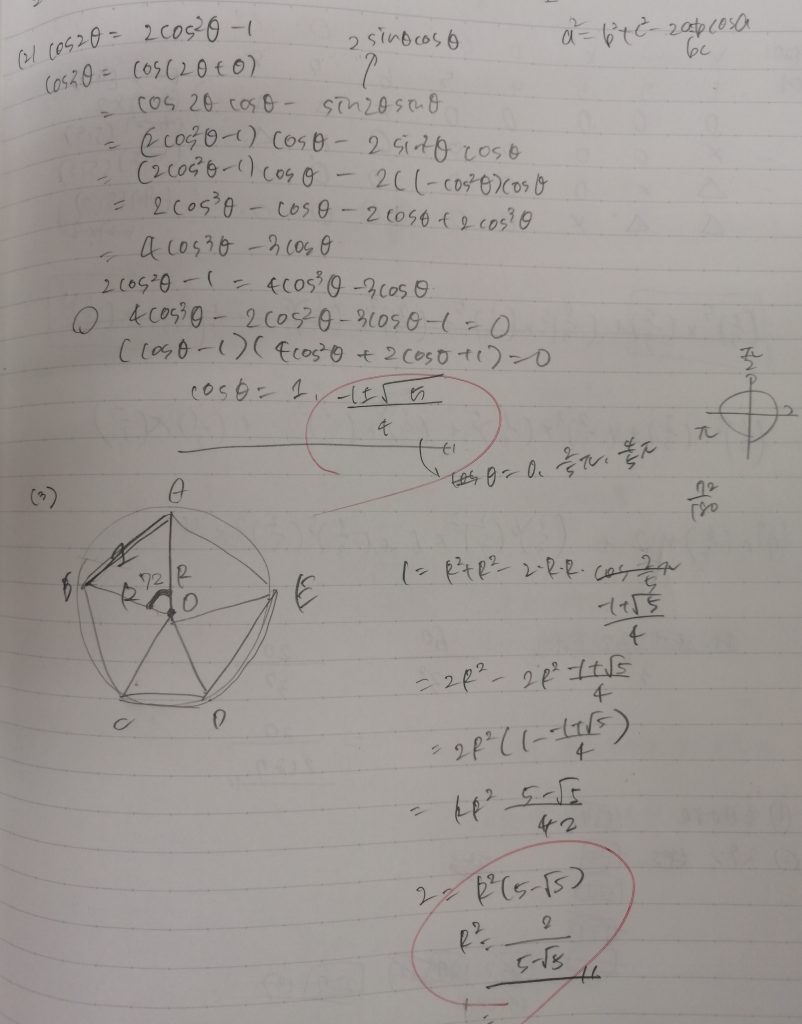 (2) cos2θ = 2cos²θ - 1
2 sinθcosθ
a² = b² + c² - 2 cosa
bc
cos3θ = cos(2θ + θ)
= cos 2θ cosθ - sin2θ sinθ
= (2cos²θ-1) cosθ - 2 sin²θ cosθ
= (2cos²θ-1) cosθ - 2(1-cos²θ)cosθ
= 2cos³θ - cosθ - 2cosθ + 2cos³θ
= 4cos³θ - 3cosθ
2cos²θ - 1 = 4cos³θ - 3cosθ
4cos³θ - 2cos²θ - 3cosθ - 1 = 0
(cosθ-1)(4cos²θ + 2cosθ + 1) = 0
cosθ = 1, (-1±√5)/4
θ = 0, 2/5 π, 4/5 π
π/2
π
72/180
(3)
A
B
C
D
E
O
R
R
72
1
1 = R² + R² - 2·R·R· cos 2/5 π
(-1+√5)/4
= 2R² - 2R² (-1+√5)/4
= 2R² (1 - (-1+√5)/4)
= R² (5-√5)/2
2 = R²(5-√5)
R² = 2/(5-√5)